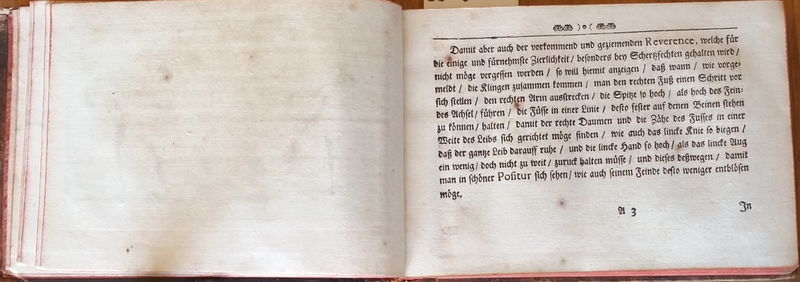 Damit aber auch der vorkommend und geziemenden Reverence, welche für
die einige und fürnehmste Zierlichkeit / besonders bey Schertzfechten gehalten wird /
nicht möge vergessen werden / so will hiemit anzeigen / daß wann / wie vorge-
meldt / die Klingen zusammen kommen / man den rechten Fuß einen Schritt vor
sich stellen / den rechten Arm ausstrecken / die Spitze so hoch / als hoch des Fein-
des Achsel / führen / die Füsse in einer Linie / desto fester auf denen Beinen stehen
zu können / halten / damit der rechte Daumen und die Zähe des Fusses in einer
Weite des Leibs sich gerichtet möge finden / wie auch das lincke Knie so biegen /
daß der gantze Leib darauff ruhe / und die lincke Hand so hoch / als das lincke Aug
ein wenig / doch nicht zu weit / zuruck halten müsse / und dieses deßwegen / damit
man in schöner Positur sich sehen / wie auch seinem Feinde desto weniger entblösen
möge.
A 3
In